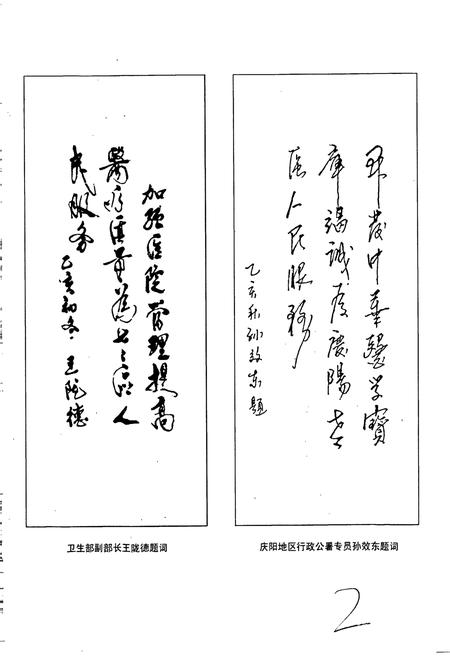 加强医院管理提高
醫疗质量為老区人
民服务
乙亥初冬 王陇德
卫生部副部长王陇德题词
开发中華醫学寶
庫竭诚为慶陽老
区人民服務
乙亥秋孙效东题
庆阳地区行政公署专员孙效东题词
2